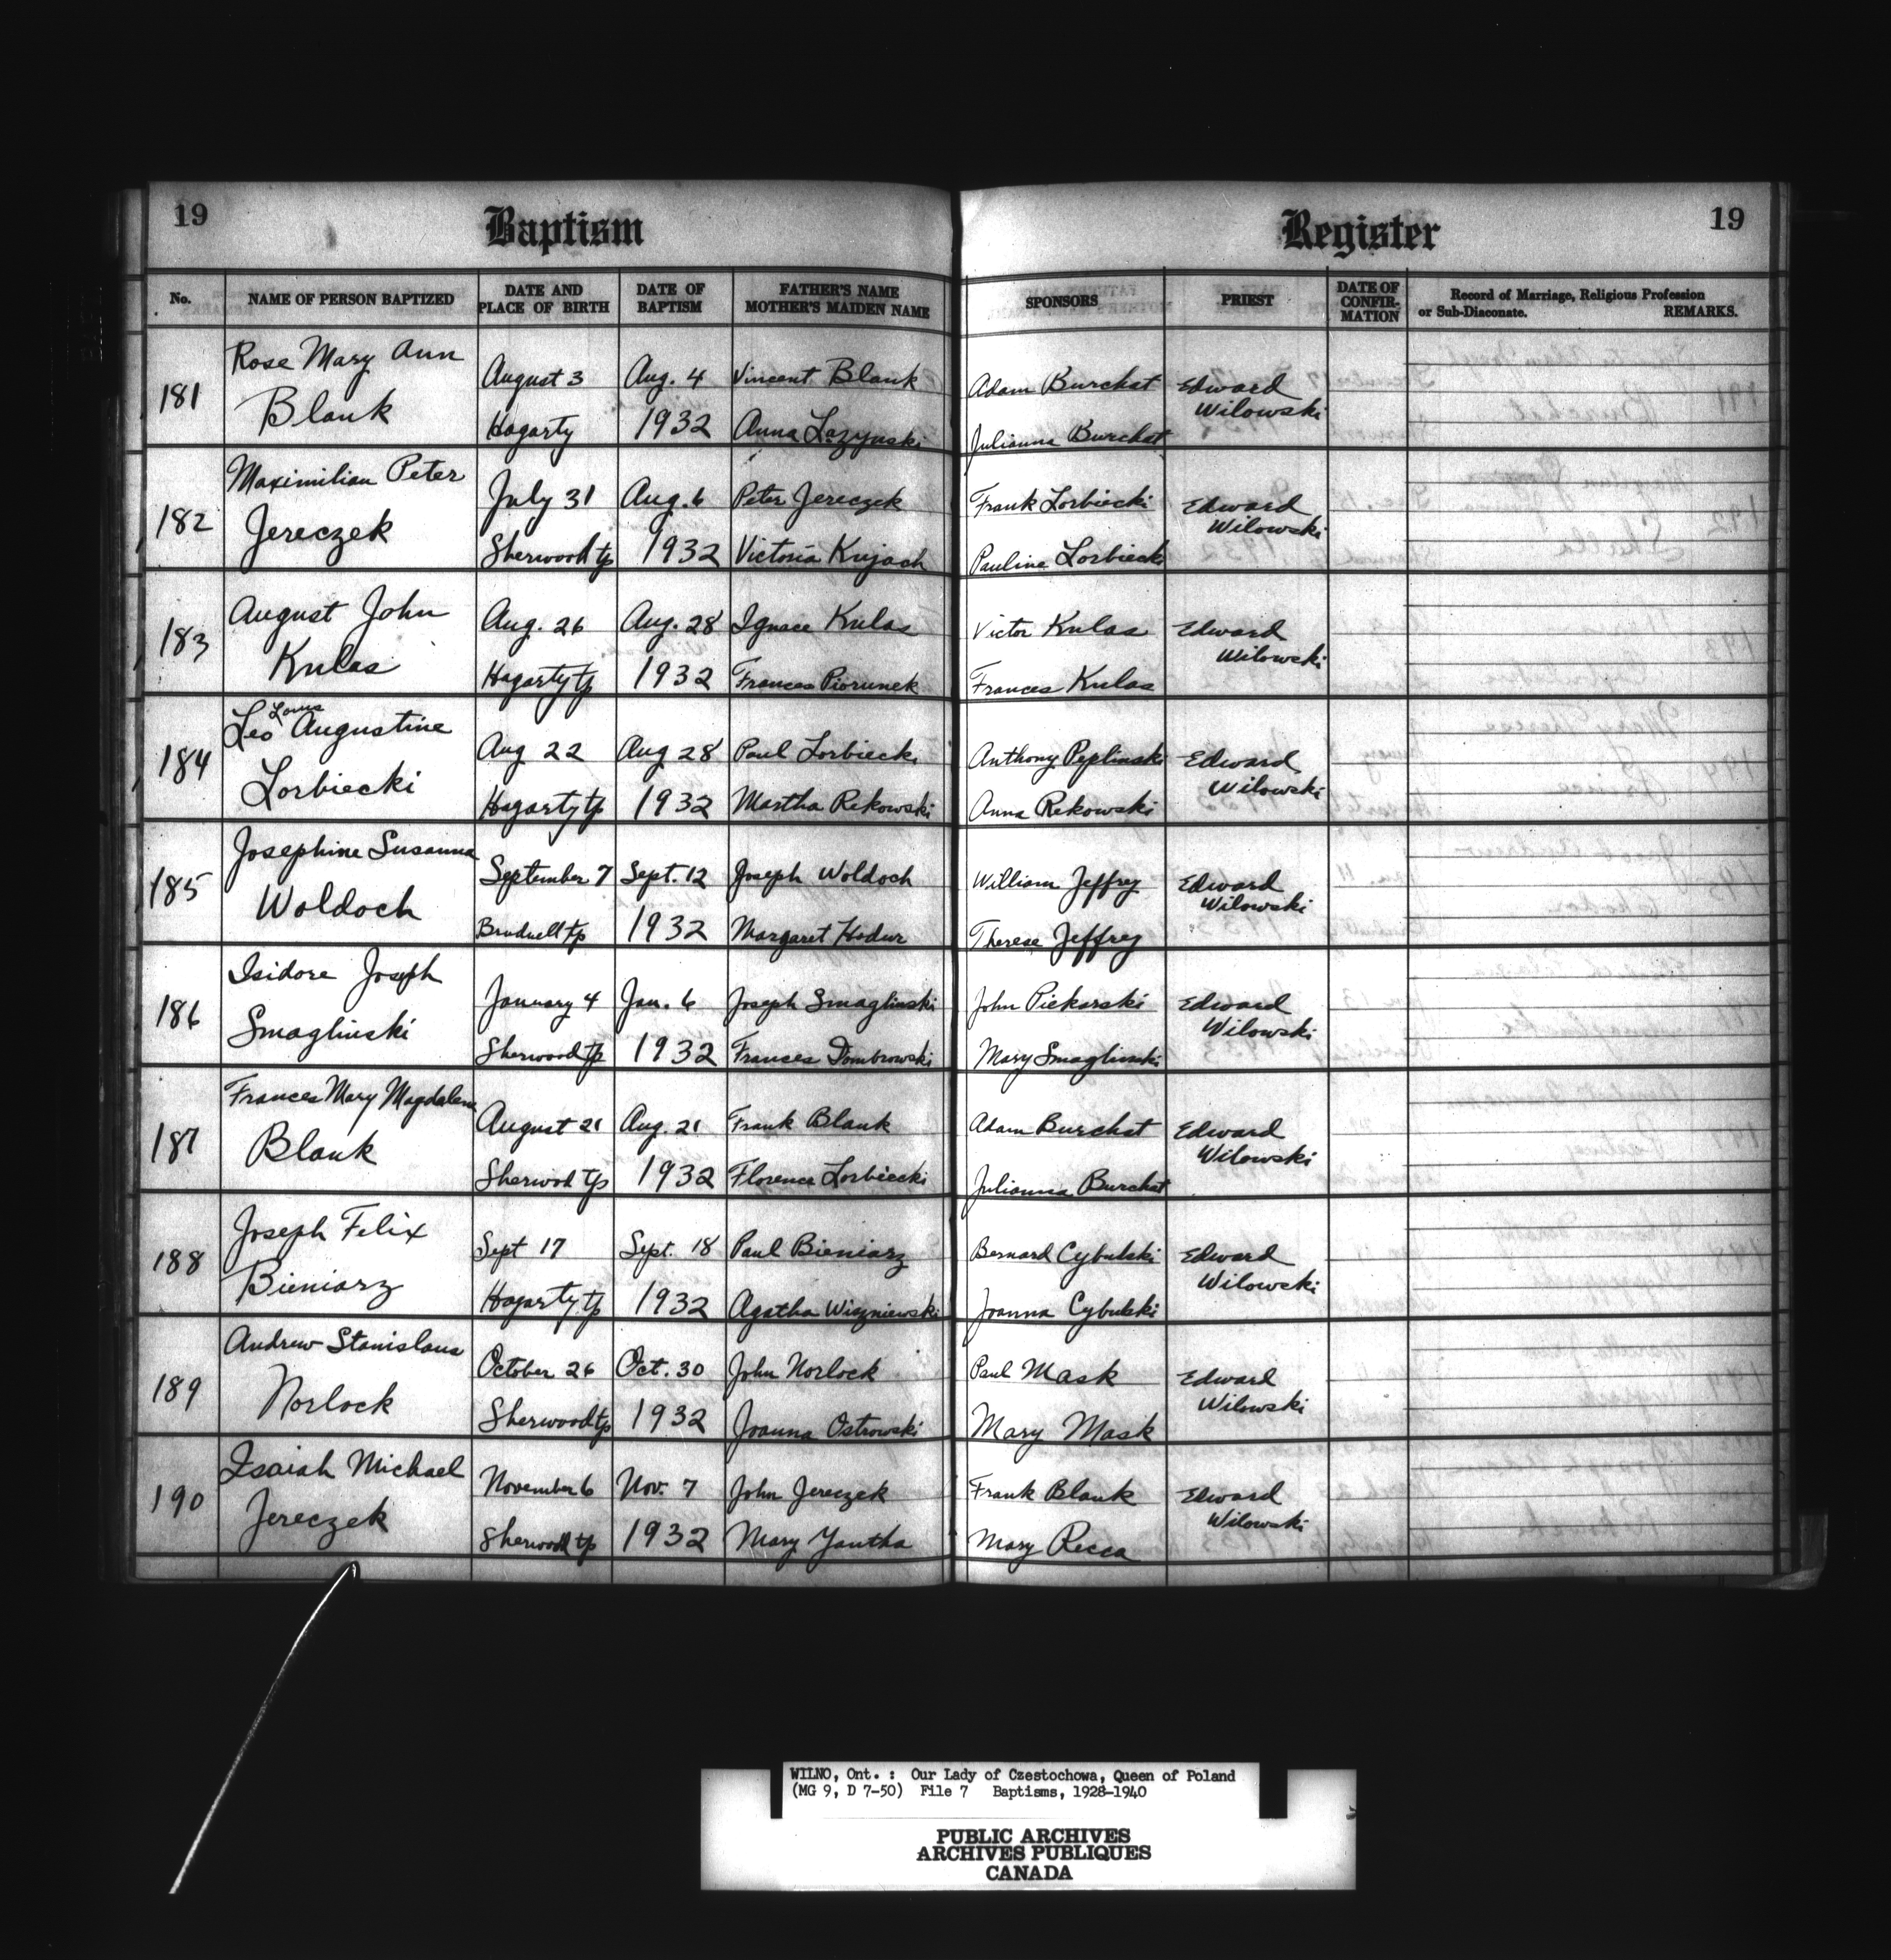 19 Baptism Register 19
No. NAME OF PERSON BAPTIZED DATE AND PLACE OF BIRTH DATE OF BAPTISM FATHER'S NAME MOTHER'S MAIDEN NAME SPONSORS PRIEST DATE OF CONFIR-MATION Record of Marriage, Religious Profession or Sub-Diaconate. REMARKS.
181
Rose Mary Ann
Blank
August 3
Hagarty
Aug. 4
1932
Vincent Blank
Anna Lazynski
Adam Burchat
Julianna Burchat
Edward
Wilowski
182
Maximilian Peter
Jereczek
July 31
Sherwood tp
Aug. 6
1932
Peter Jereczek
Victoria Kujach
Frank Lorbiecki
Pauline Lorbiecki
Edward
Wilowski
183
August John
Kulas
Aug. 26
Hagarty tp
Aug. 28
1932
Ignace Kulas
Frances Piorunek
Victor Kulas
Frances Kulas
Edward
Wilowski
184
Louis
Leo Augustine
Lorbiecki
Aug 22
Hagarty tp
Aug 28
1932
Paul Lorbiecki
Martha Rekowski
Anthony Peplinski
Anna Rekowski
Edward
Wilowski
185
Josephine Susanna
Woldoch
September 7
Brudnell tp
Sept. 12
1932
Joseph Woldoch
Margaret Hodur
William Jeffrey
Therese Jeffrey
Edward
Wilowski
186
Isidore Joseph
Smaglinski
January 4
Sherwood tp
Jan. 6
1932
Joseph Smaglinski
Frances Dombrowski
John Piekarski
Mary Smaglinski
Edward
Wilowski
187
Frances Mary Magdalene
Blank
August 21
Sherwod tp
Aug. 21
1932
Frank Blank
Florence Lorbiecki
Adam Burchat
Julianna Burchat
Edward
Wilowski
188
Joseph Felix
Bieniarz
Sept 17
Hagarty tp
Sept. 18
1932
Paul Bieniarz
Agatha Wiszniewski
Bernard Cybulski
Joanna Cybulski
Edward
Wilowski
189
Andrew Stanislaus
Norlock
October 26
Sherwood tp
Oct. 30
1932
John Norlock
Joanna Ostrowski
Paul Mask
Mary Mask
Edward
Wilowski
190
Isaiah Michael
Jereczek
November 6
Sherwood tp
Nov. 7
1932
John Jereczek
Mary Yantha
Frank Blank
Mary Recca
Edward
Wilowski
WILNO, Ont. : Our Lady of Czestochowa, Queen of Poland
(MG 9, D 7-50) File 7 Baptisms, 1928-1940
PUBLIC ARCHIVES
ARCHIVES PUBLIQUES
CANADA